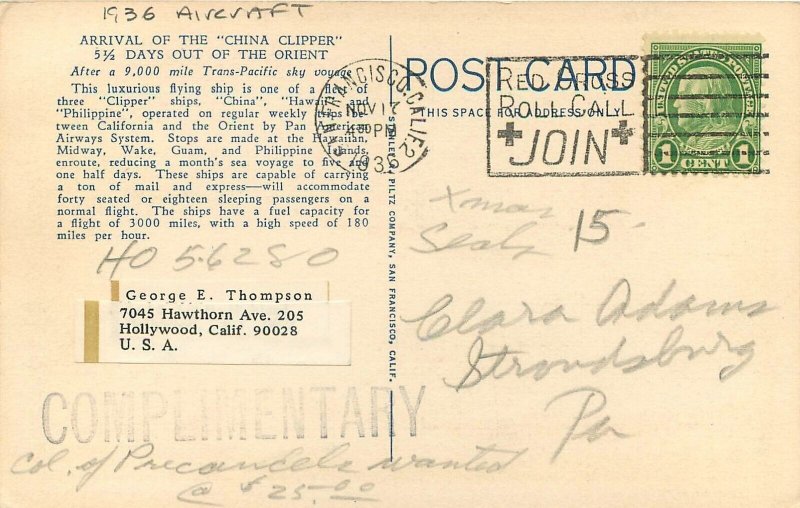 1936 AIRCRAFT
ARRIVAL OF THE "CHINA CLIPPER"
5½ DAYS OUT OF THE ORIENT
After a 9,000 mile Trans-Pacific sky voyage
This luxurious flying ship is one of a fleet of
three "Clipper" ships, "China", "Hawaii" and
"Philippine", operated on regular weekly be-
tween California and the Orient by Pan American
Airways System. Stops are made at the Hawaiian,
Midway, Wake, Guam, and Philippine Islands,
enroute, reducing a month's sea voyage to five and
one half days. These ships are capable of carrying
a ton of mail and express—will accommodate
forty seated or eighteen sleeping passengers on a
normal flight. The ships have a fuel capacity for
a flight of 3000 miles, with a high speed of 180
miles per hour.
HO 56280
George E. Thompson
7045 Hawthorn Ave. 205
Hollywood, Calif. 90028
U. S. A.
COMPLIMENTARY
Col. of Precancels wanted
@ $25.00
PILTZ COMPANY, SAN FRANCISCO, CALIF.
SAN FRANCISCO, CALIF. 2
NOV 17
4 30 PM
1936
POST CARD
THIS SPACE FOR ADDRESS ONLY
RED CROSS
ROLL CALL
JOIN
1 CENT 1
Xmas
Seals 15
Clara Adams
Stroudsburg
Pa